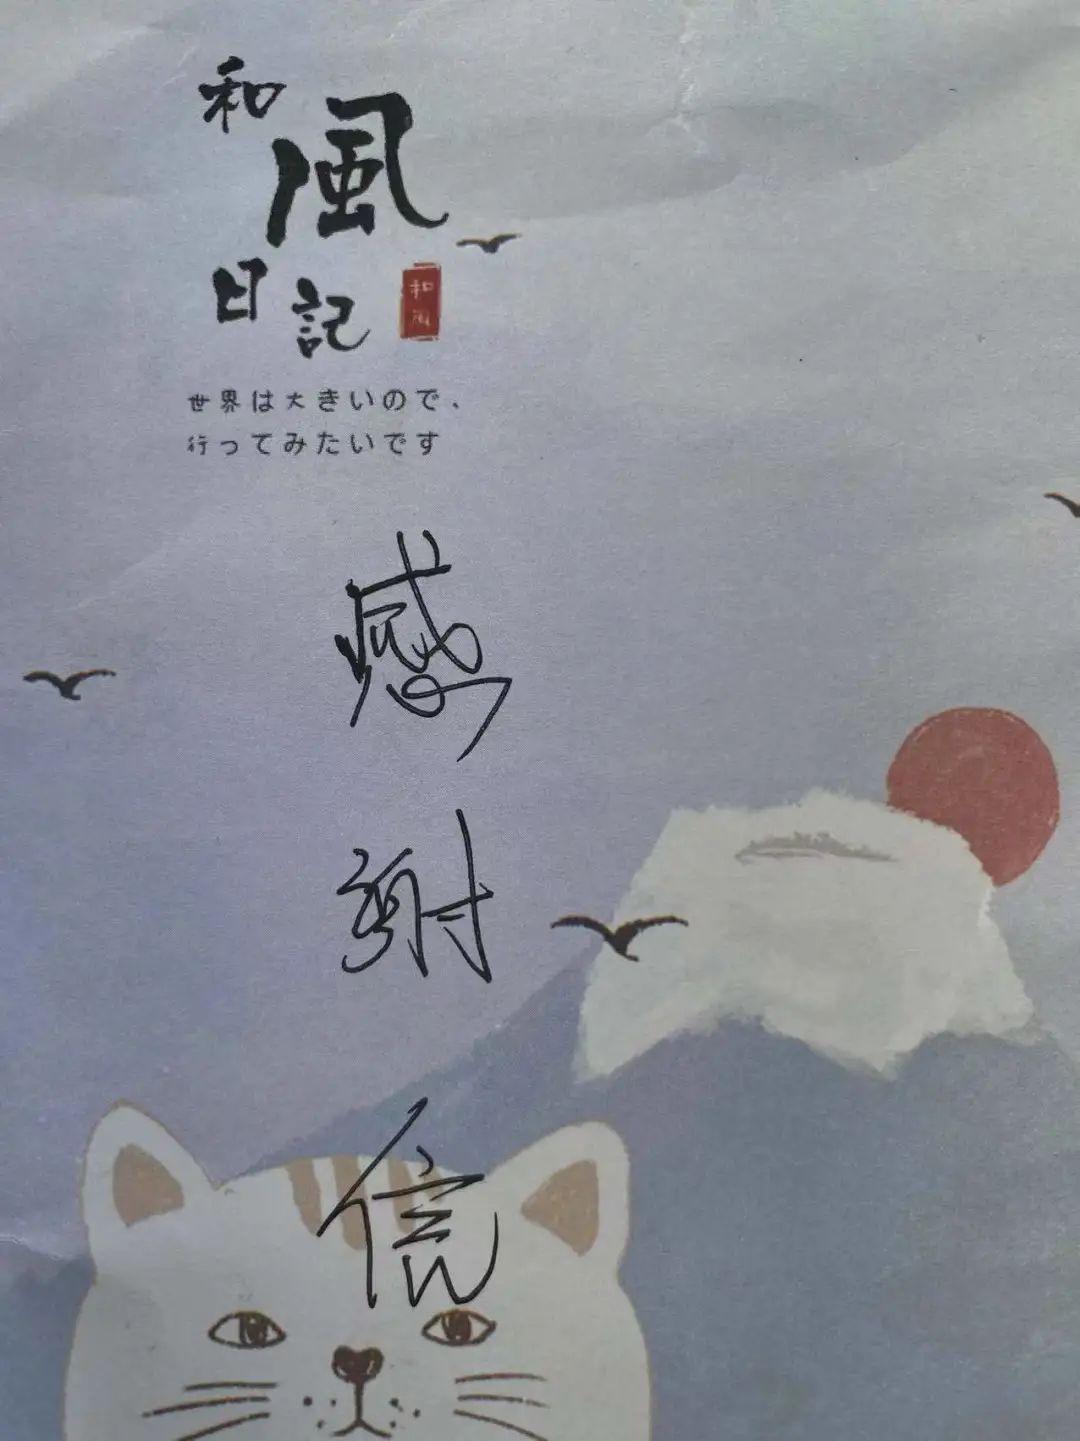 和風日記
和風
世界は大きいので、
行ってみたいです
感謝信